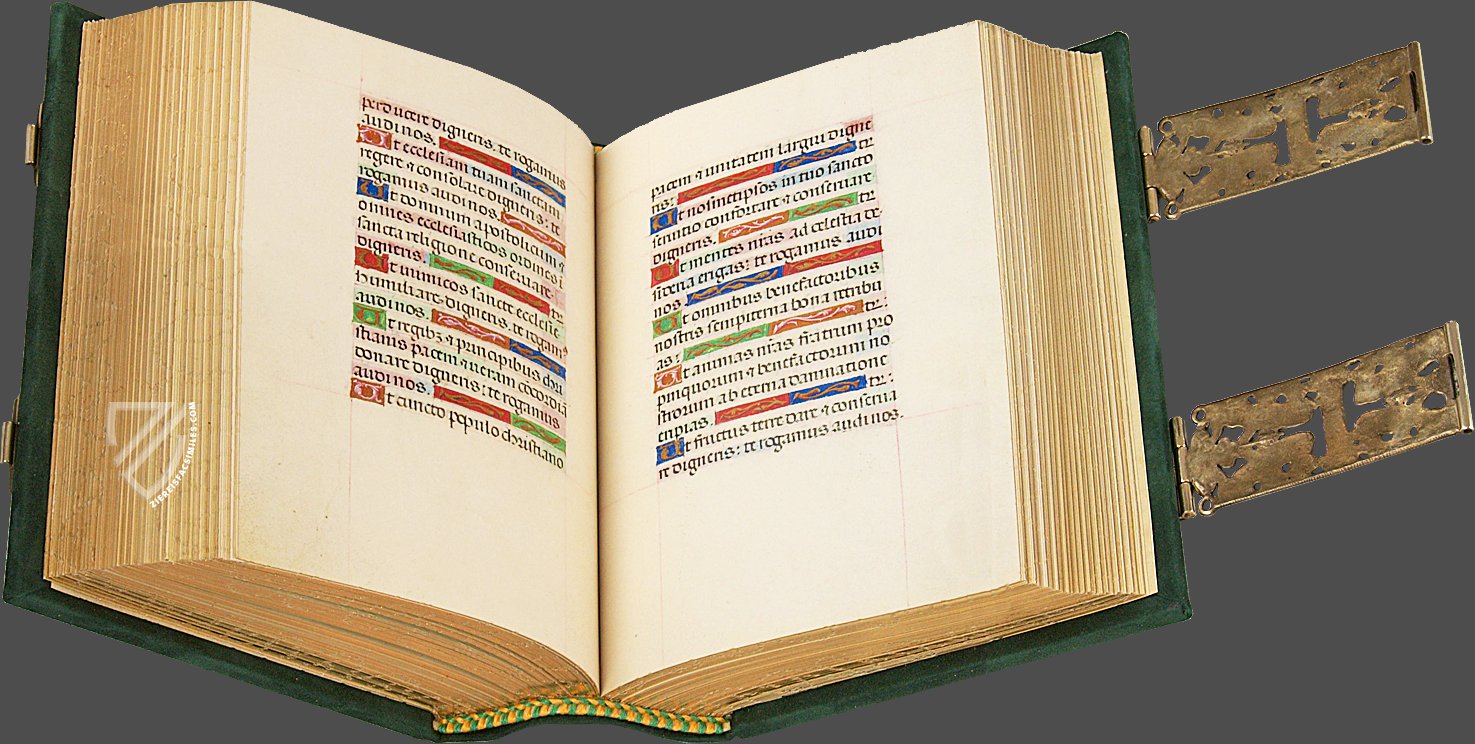 perducere digneris. te rogamus
audi nos.
Ut ecclesiam tuam sanctam
regere ⁊ consolare digneris: te
rogamus audi nos.
Ut domnum apostolicum ⁊
omnes ecclesiasticos ordines i
sancta religione conseruare
digneris.
Ut inimicos sancte ecclesie
humiliare digneris. te rogam
audi nos.
Ut regibꝫ ⁊ principibus chri
stianis pacem ⁊ ueram cōcordiā
donare digneris: te rogamus
audi nos.
Ut cuncto populo christiano
pacem ⁊ unitatem largiri digne
ris:
Ut nosmetipsos in tuo sancto
seruitio confortare ⁊ conseruare
digneris.
Ut mentes nr̄as ad celestia de
sideria erigas: te rogamus audi
nos.
Ut omnibus benefactoribus
nostris sempiterna bona retribu
as:
Ut animas nr̄as fratrum pro
pinquorum ⁊ benefactorum no
strorum ab eterna damnatione
eripias.
Ut fructus terre dare ⁊ conserua
re digneris: te rogamus audi nos.
ZIEREISFACSIMILES.COM